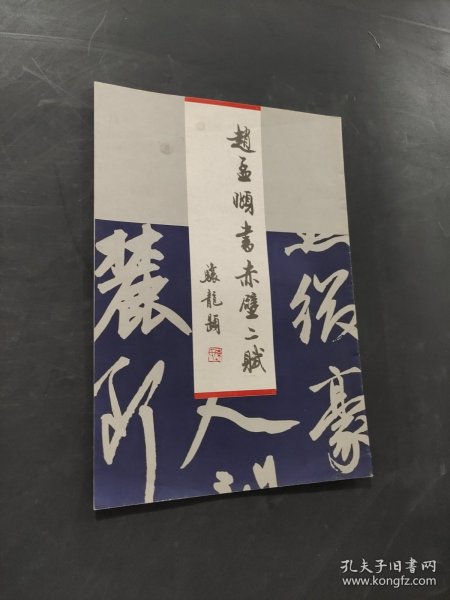 趙孟頫書赤壁二賦
龍題
從豪
人
麓
孔夫子旧书网
www.kongfz.com